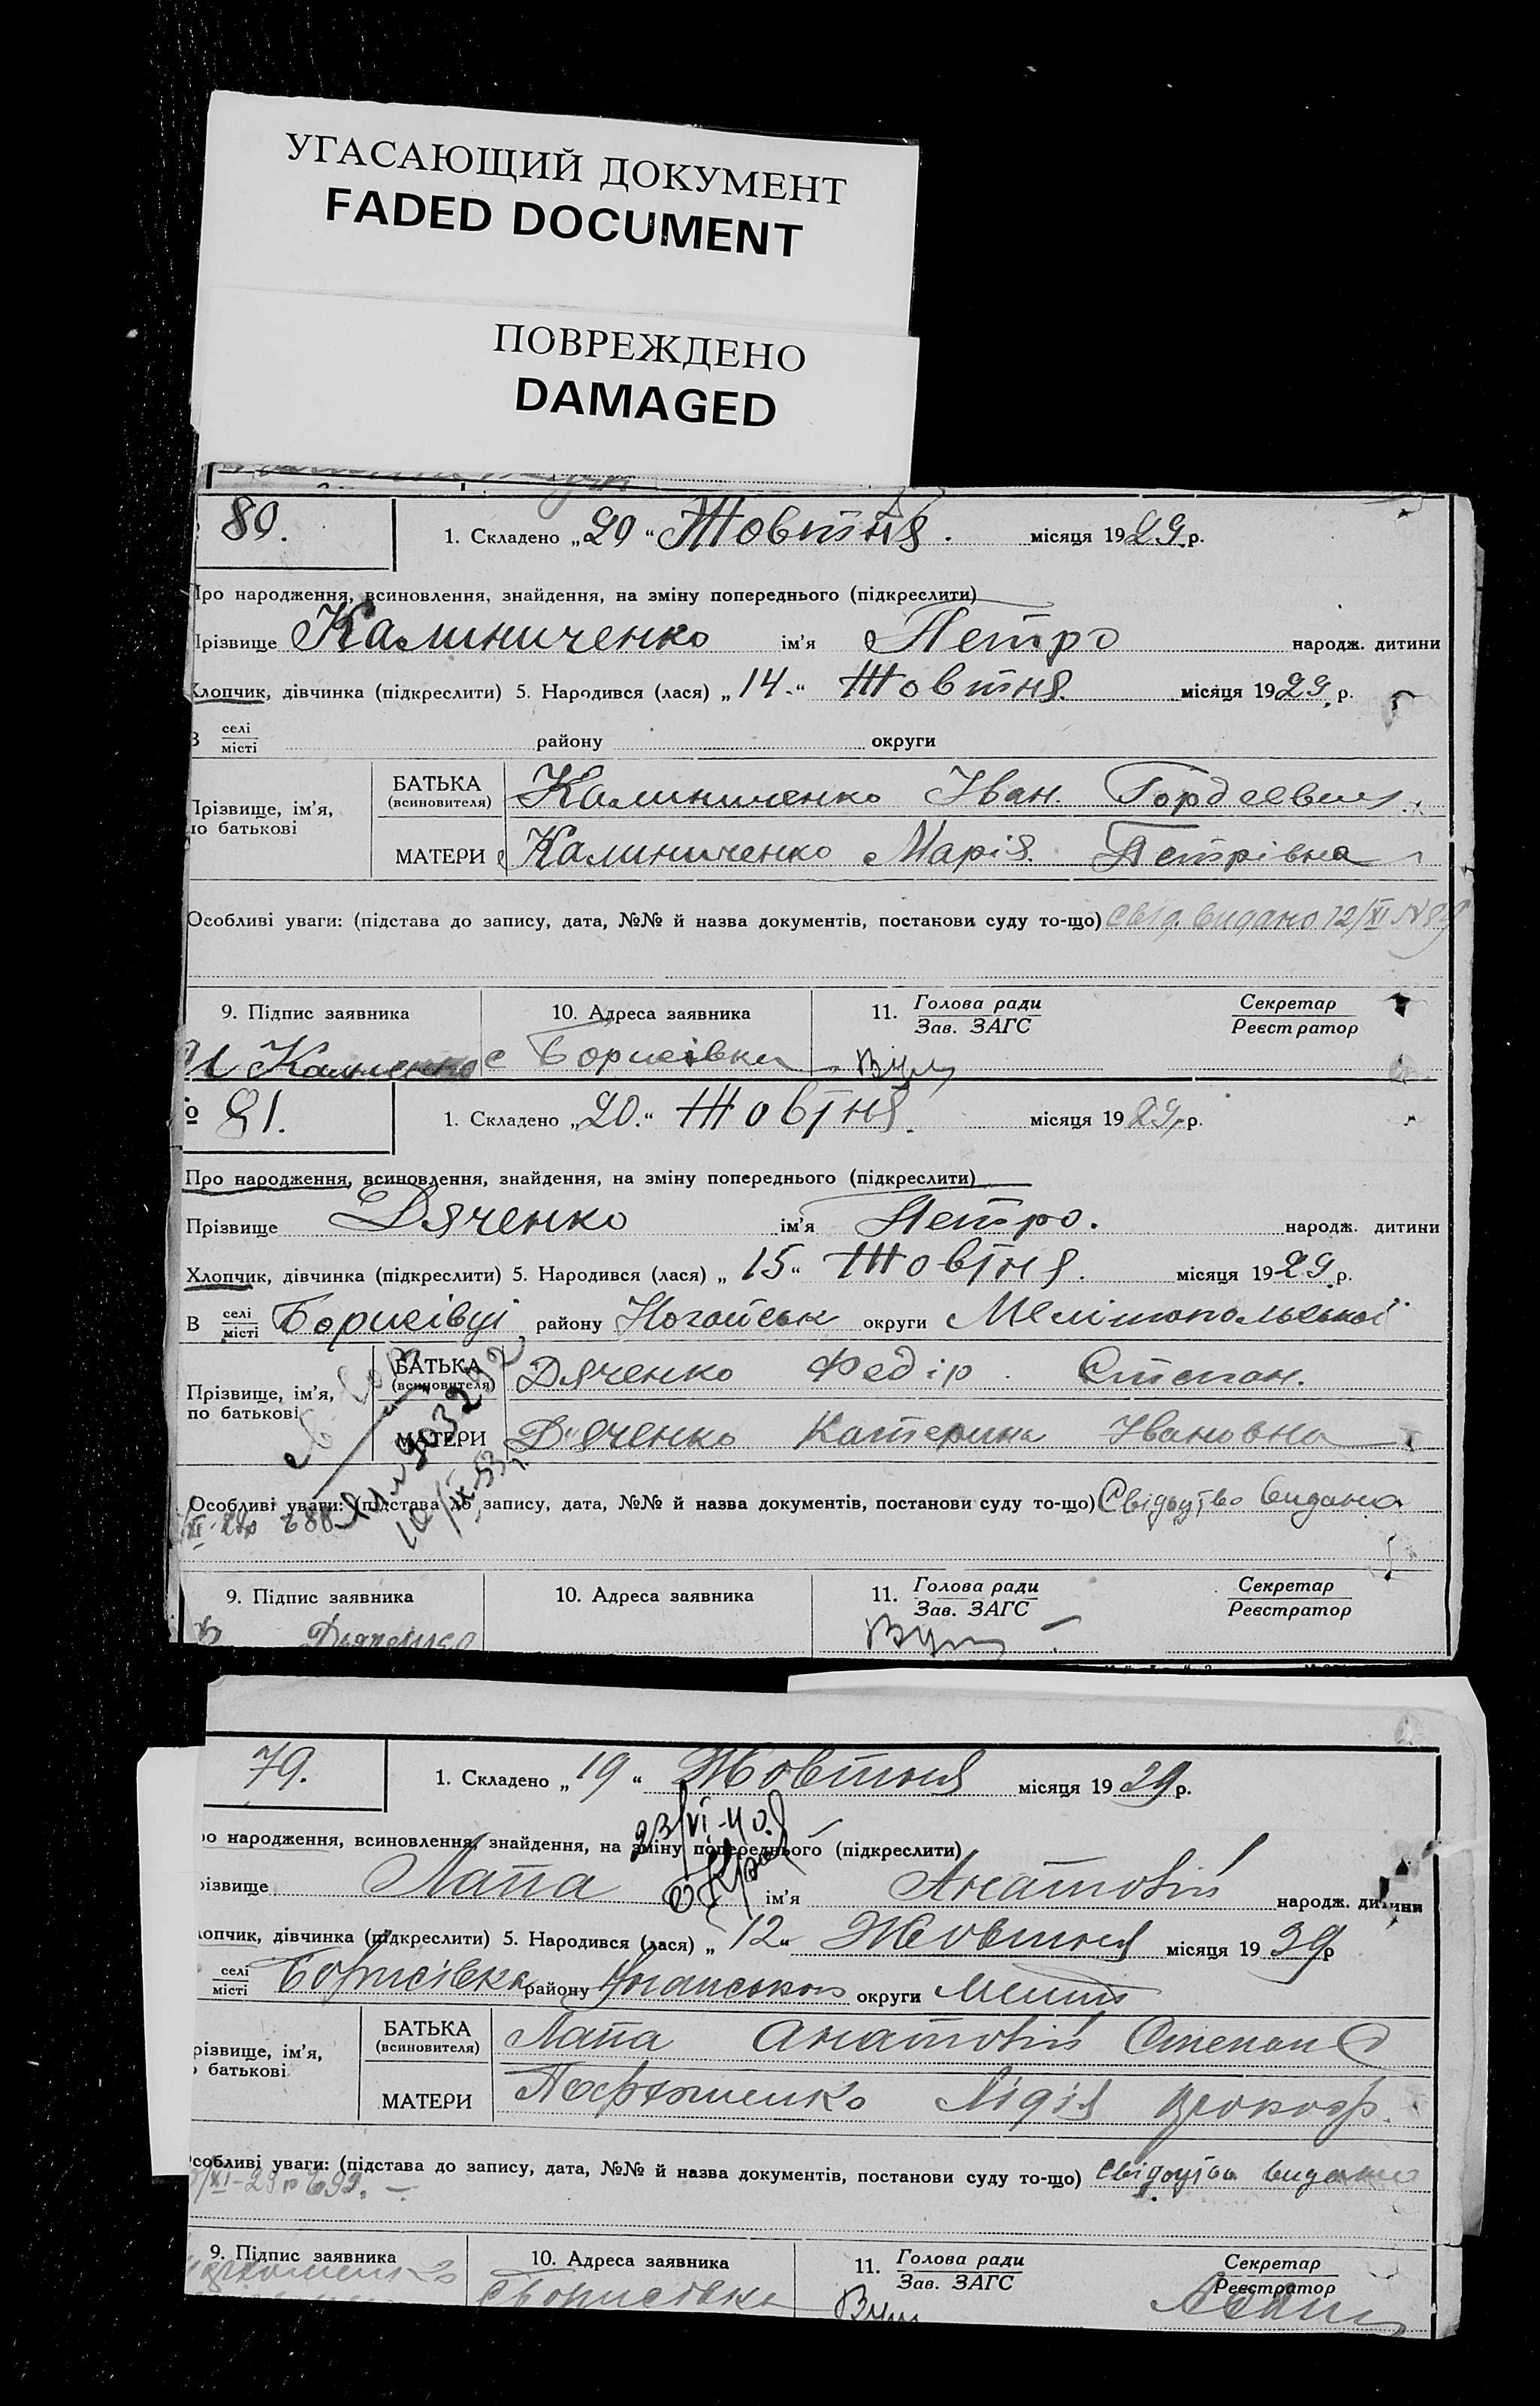 УГАСАЮЩИЙ ДОКУМЕНТ
FADED DOCUMENT
ПОВРЕЖДЕНО
DAMAGED
80.
1. Складено „20“ Жовтня. місяця 1929 р.
Про народження, всиновлення, знайдення, на зміну попереднього (підкреслити)
Прізвище Калиниченко ім'я Петро народж. дитини
Хлопчик, дівчинка (підкреслити) 5. Народився (лася) „14.“ Жовтня. місяця 1929. р.
В селі місті району округи
Прізвище, ім'я, по батькові
БАТЬКА (всиновителя) Калиниченко Іван. Гордеевич
МАТЕРИ Калиниченко Марія. Петрівна
Особливі уваги: (підстава до запису, дата, №№ й назва документів, постанови суду то-що) Свід. видано 12/XI
9. Підпис заявника 10. Адреса заявника 11. Голова ради Зав. ЗАГС Секретар Реєстратор
с Борисівка
№ 81.
1. Складено „20.“ Жовтня. місяця 1929 р.
Про народження, всиновлення, знайдення, на зміну попереднього (підкреслити)
Прізвище Дяченко ім'я Петро. народж. дитини
Хлопчик, дівчинка (підкреслити) 5. Народився (лася) „15“ Жовтня. місяця 1929. р.
В селі місті Борисівці району Ногайськ округи Мелітопольської
Прізвище, ім'я, по батькові
БАТЬКА (всиновителя) Дяченко Федір. Степан.
МАТЕРИ Дяченко Катерина Івановна
Особливі уваги: (підстава до запису, дата, №№ й назва документів, постанови суду то-що) Свідоцтво видано
9. Підпис заявника 10. Адреса заявника 11. Голова ради Зав. ЗАГС Секретар Реєстратор
Дяченко
79.
1. Складено „19“ Жовтня місяця 1929 р.
23/VI-40.
ро народження, всиновлення, знайдення, на зміну попереднього (підкреслити)
різвище Лапа ім'я Анатолій народж. дитини
лопчик, дівчинка (підкреслити) 5. Народився (лася) „12“ Жовтня місяця 1929 р
селі місті Борисівка району Ногайського округи Меліт
різвище, ім'я, батькові
БАТЬКА (всиновителя) Лапа Анатолій Степан
МАТЕРИ Пархоменко Лідія Прокоф.
собливі уваги: (підстава до запису, дата, №№ й назва документів, постанови суду то-що) Свідоцтво видано
9. Підпис заявника 10. Адреса заявника 11. Голова ради Зав. ЗАГС Секретар Реєстратор
Борисівка